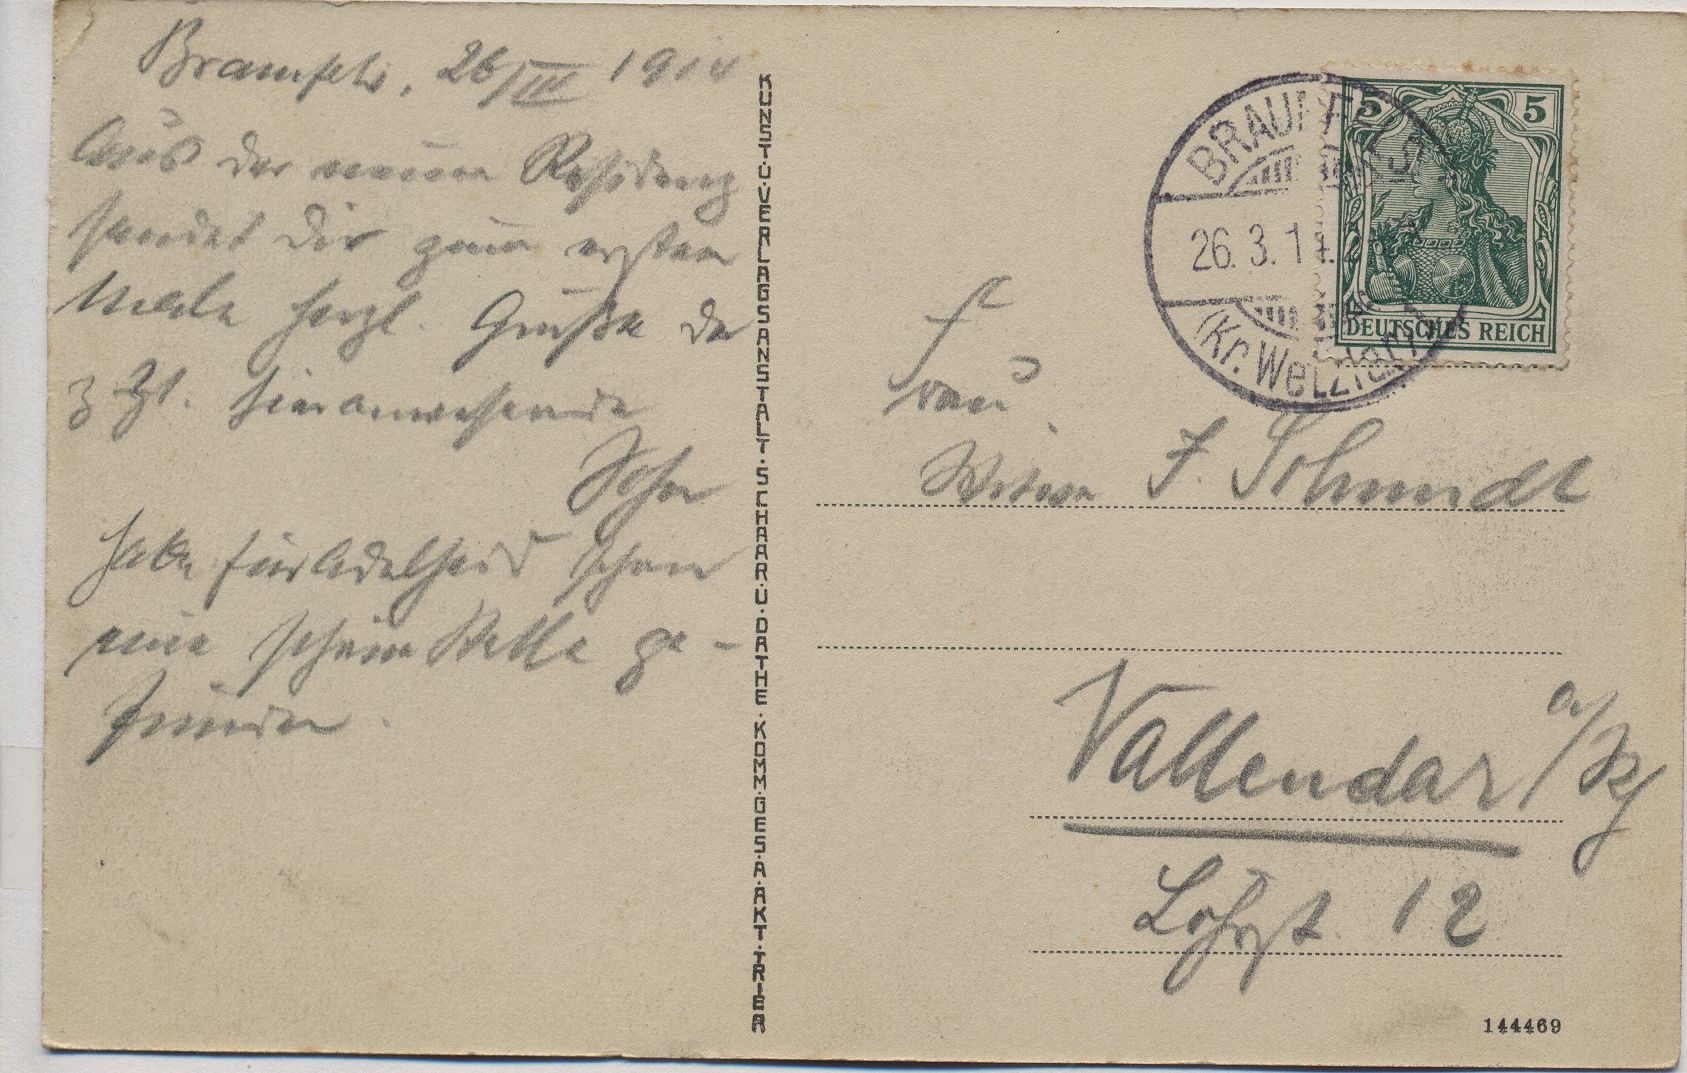 Braunfels, 26/III 1914
Aus der neuen Residenz
sendet Dir zum ersten
Male herzl. Grüße der
z. Zt. hieranwesende
Sohn
Habe für Adelheid schon
eine schöne Stelle ge-
funden.
KUNST·U·VERLAGSANSTALT·SCHAAR·U·DATHE·KOMM·GES·A·AKT·TRIER
BRAUNFELS
26. 3. 14.
(Kr. Wetzlar)
5 5
DEUTSCHES REICH
Frau
Witwe J. Schmidt
Vallendar a/Rh
Löhrst 12
144469